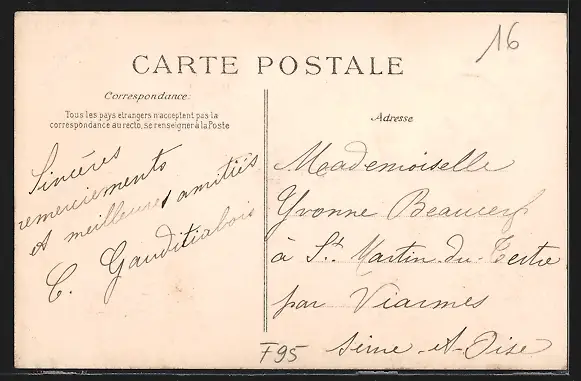 16
CARTE POSTALE
Correspondance:
Tous les pays étrangers n'acceptent pas la
correspondance au recto, se renseigner à la Poste
Adresse
Sincères
remerciements
et meilleures amitiés
C.
Mademoiselle
Yvonne Beaucerf
à St. Martin-du-Tertre
par Viarmes
Seine-et-Oise
F95